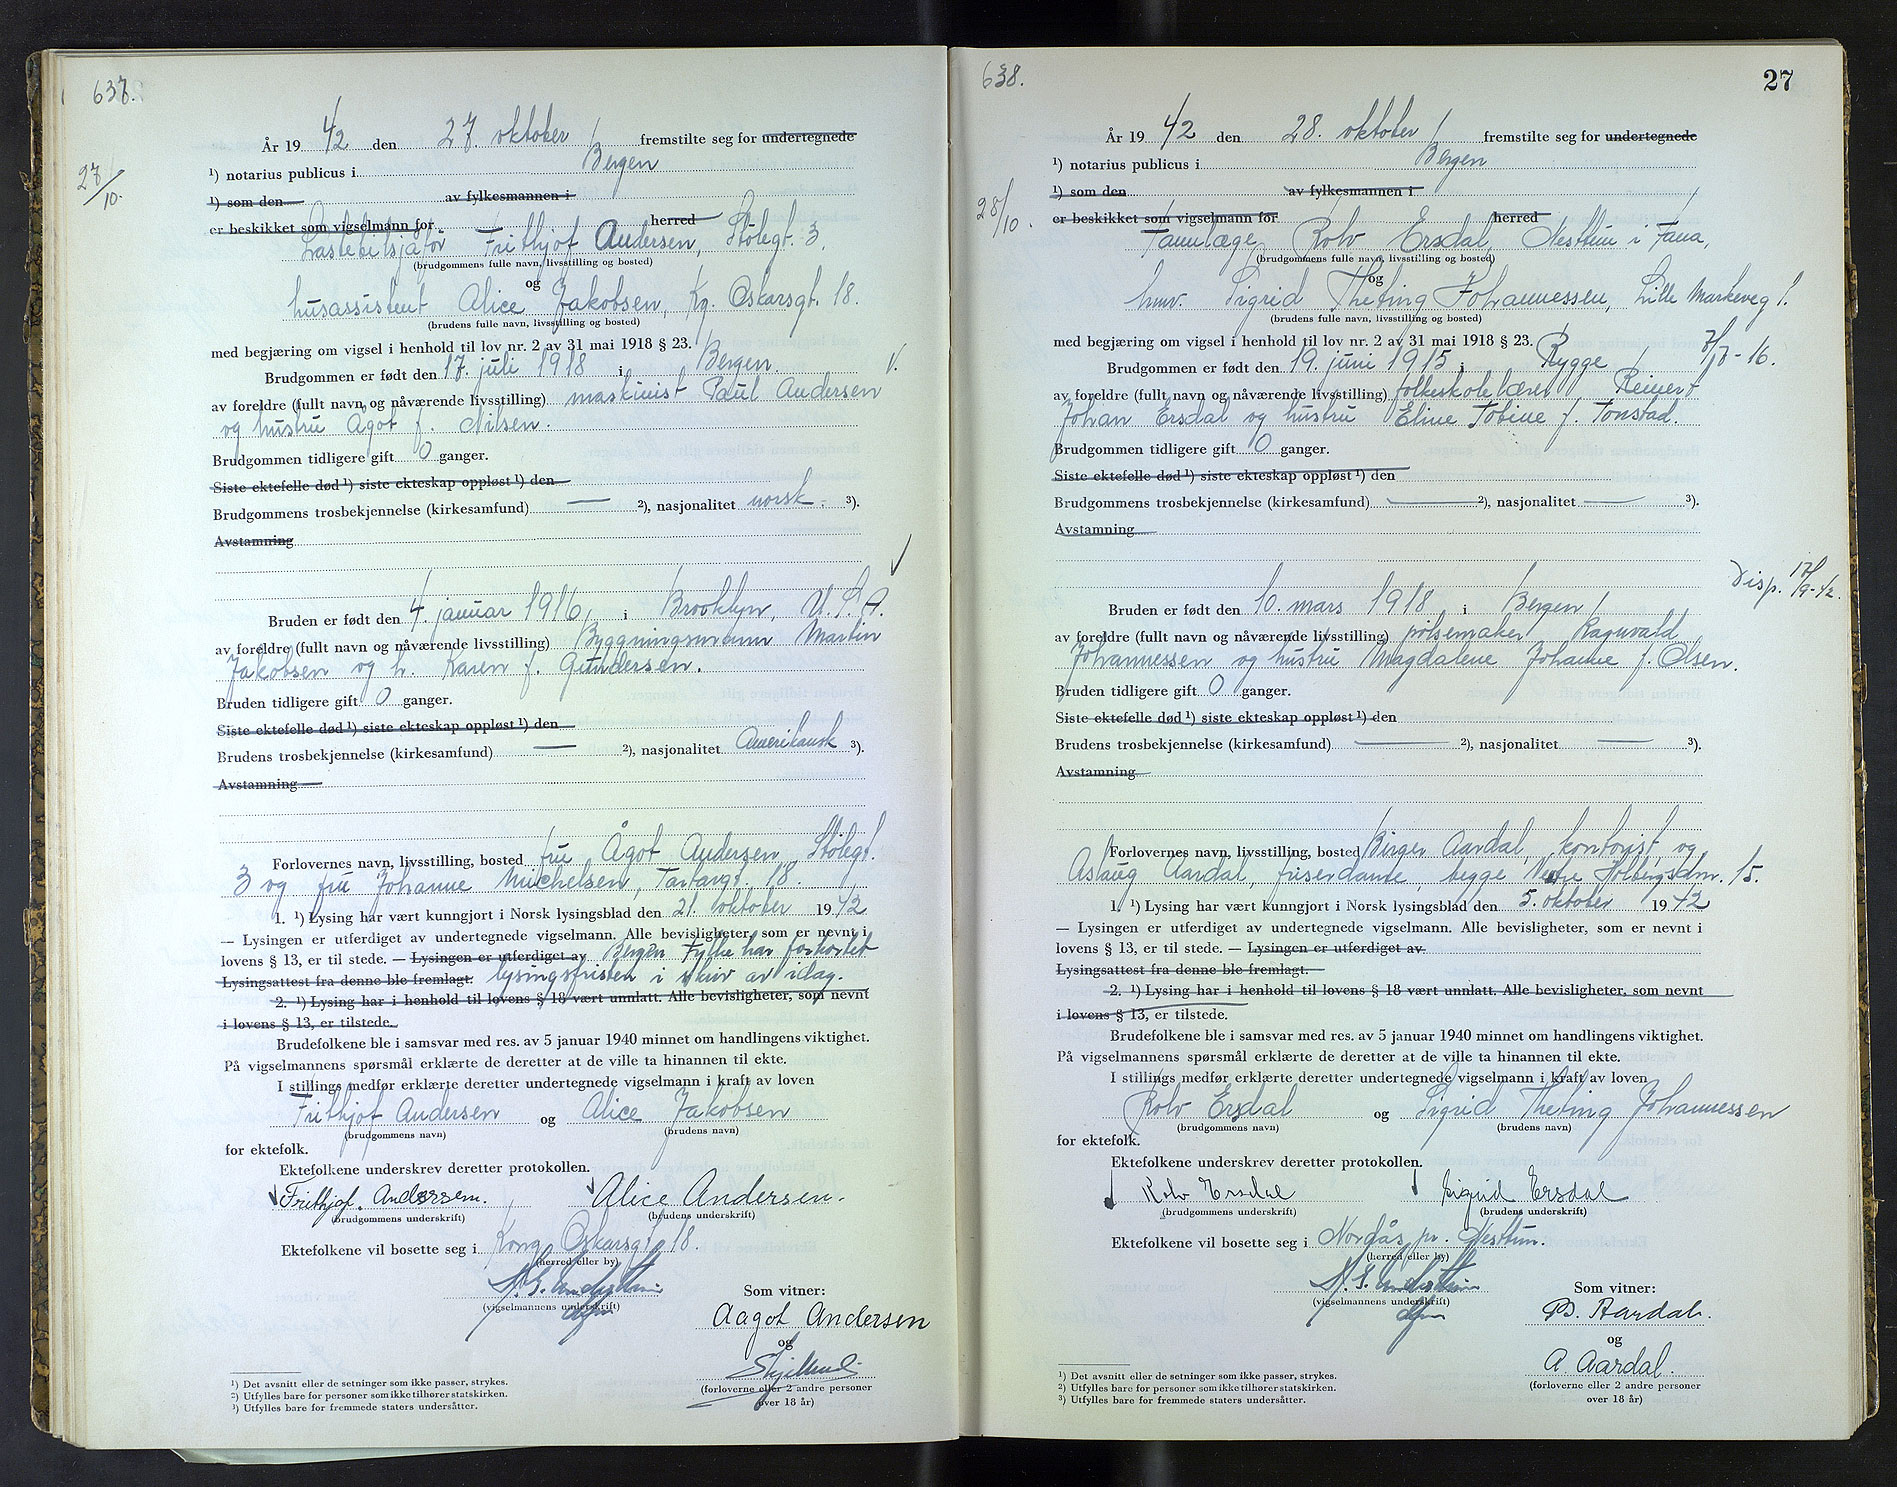 637.
År 19 42 den 27. oktober fremstilte seg for undertegnede
¹) notarius publicus i Bergen
27/10.
¹) som den av fylkesmannen i
er beskikket som vigselmann for herred
Lastebilsjåfør Frithjof Andersen, Stølegt. 3.
(brudgommens fulle navn, livsstilling og bosted)
og
husassistent Alice Jakobsen, Kg. Oskarsgt. 18.
(brudens fulle navn, livsstilling og bosted)
med begjæring om vigsel i henhold til lov nr. 2 av 31 mai 1918 § 23.
Brudgommen er født den 17. juli 1918 i Bergen.
av foreldre (fullt navn og nåværende livsstilling) maskinist Paul Andersen
og hustru Ågot f. Nilsen.
Brudgommen tidligere gift 0 ganger.
Siste ektefelle død ¹) siste ekteskap oppløst ¹) den
Brudgommens trosbekjennelse (kirkesamfund) — ²), nasjonalitet norsk. ³).
Avstamning
Bruden er født den 4. januar 1916, i Brooklyn, U.S.A.
av foreldre (fullt navn og nåværende livsstilling) Byggningsmann Martin
Jakobsen og h. Karen f. Gundersen.
Bruden tidligere gift 0 ganger.
Siste ektefelle død ¹) siste ekteskap oppløst ¹) den
Brudens trosbekjennelse (kirkesamfund) — ²), nasjonalitet Amerikansk ³).
Avstamning
Forlovernes navn, livsstilling, bosted fru Ågot Andersen, Stølegt.
3 og fru Johanne Michelsen, Tartargt. 18.
1. ¹) Lysing har vært kunngjort i Norsk lysingsblad den 21. oktober 19 42
— Lysingen er utferdiget av undertegnede vigselmann. Alle bevisligheter, som er nevnt i
lovens § 13, er til stede. — Lysingen er utferdiget av Bergen Fylke har forkortet
Lysingsattest fra denne ble fremlagt. lysingsfristen i skriv av idag.
2. ¹) Lysing har i henhold til lovens § 18 vært unnlatt. Alle bevisligheter, som nevnt
i lovens § 13, er tilstede.
Brudefolkene ble i samsvar med res. av 5 januar 1940 minnet om handlingens viktighet.
På vigselmannens spørsmål erklærte de deretter at de ville ta hinannen til ekte.
I stillings medfør erklærte deretter undertegnede vigselmann i kraft av loven
Frithjof Andersen og Alice Jakobsen
(brudgommens navn) (brudens navn)
for ektefolk.
Ektefolkene underskrev deretter protokollen.
Frithjof. Andersen. Alice Andersen.
(brudgommens underskrift) (brudens underskrift)
Ektefolkene vil bosette seg i Kong Oskarsgt. 18.
(herred eller by)
(vigselmannens underskrift)
Som vitner:
Aagot Andersen
og
(forloverne eller 2 andre personer
over 18 år)
¹) Det avsnitt eller de setninger som ikke passer, strykes.
²) Utfylles bare for personer som ikke tilhører statskirken.
³) Utfylles bare for fremmede staters undersåtter.
638.
27
År 19 42 den 28. oktober fremstilte seg for undertegnede
¹) notarius publicus i Bergen
28/10.
¹) som den av fylkesmannen i
er beskikket som vigselmann for herred
Tannlæge Rolv Ersdal, Nesttun i Fana,
(brudgommens fulle navn, livsstilling og bosted)
og
hmv. Sigrid Theting Johannessen, Lille Markeveg 1.
(brudens fulle navn, livsstilling og bosted)
med begjæring om vigsel i henhold til lov nr. 2 av 31 mai 1918 § 23.
Brudgommen er født den 19. juni 1915 i Rygge
av foreldre (fullt navn og nåværende livsstilling) folkeskolelærer Reinert
Johan Ersdal og hustru Eline Tobine f. Tonstad.
Brudgommen tidligere gift 0 ganger.
Siste ektefelle død ¹) siste ekteskap oppløst ¹) den
Brudgommens trosbekjennelse (kirkesamfund) — ²), nasjonalitet — ³).
Avstamning
Disp. 17/9-42.
Bruden er født den 10. mars 1918, i Bergen
av foreldre (fullt navn og nåværende livsstilling) pølsemaker Ragnvald
Johannessen og hustru Magdalene Johanne f. Olsen.
Bruden tidligere gift 0 ganger.
Siste ektefelle død ¹) siste ekteskap oppløst ¹) den
Brudens trosbekjennelse (kirkesamfund) — ²), nasjonalitet — ³).
Avstamning
Forlovernes navn, livsstilling, bosted Birger Aardal, kontorist, og
Aslaug Aardal, friserdame, begge Nedre Holbergsalm. 15.
1. ¹) Lysing har vært kunngjort i Norsk lysingsblad den 5. oktober 19 42
— Lysingen er utferdiget av undertegnede vigselmann. Alle bevisligheter, som er nevnt i
lovens § 13, er til stede. — Lysingen er utferdiget av
Lysingsattest fra denne ble fremlagt.
2. ¹) Lysing har i henhold til lovens § 18 vært unnlatt. Alle bevisligheter, som nevnt
i lovens § 13, er tilstede.
Brudefolkene ble i samsvar med res. av 5 januar 1940 minnet om handlingens viktighet.
På vigselmannens spørsmål erklærte de deretter at de ville ta hinannen til ekte.
I stillings medfør erklærte deretter undertegnede vigselmann i kraft av loven
Rolv Ersdal og Sigrid Theting Johannessen
(brudgommens navn) (brudens navn)
for ektefolk.
Ektefolkene underskrev deretter protokollen.
Rolv Ersdal Sigrid Ersdal
(brudgommens underskrift) (brudens underskrift)
Ektefolkene vil bosette seg i Nordås pr. Nesttun.
(herred eller by)
(vigselmannens underskrift)
Som vitner:
B. Aardal.
og
A Aardal.
(forloverne eller 2 andre personer
over 18 år)
¹) Det avsnitt eller de setninger som ikke passer, strykes.
²) Utfylles bare for personer som ikke tilhører statskirken.
³) Utfylles bare for fremmede staters undersåtter.